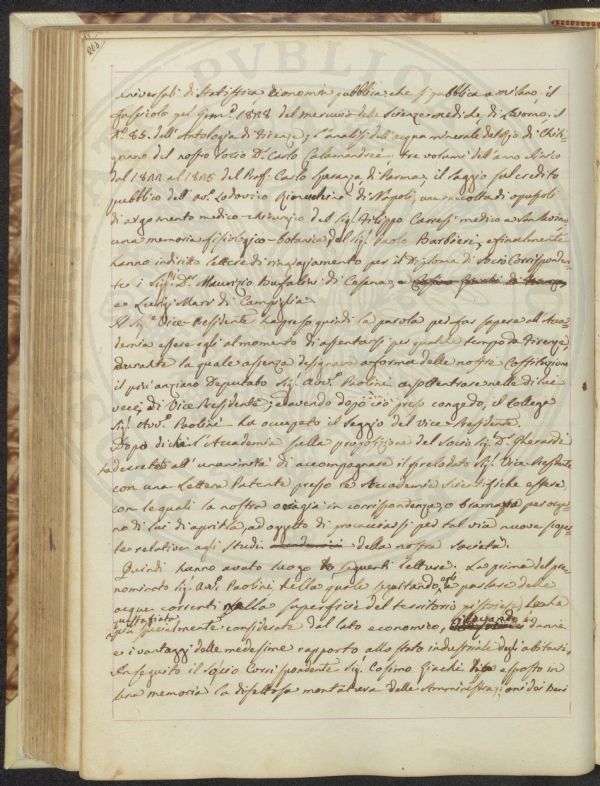 263.
universali di Statistica, Economia pubblica che si pubblica a Milano, il
fascicolo pel Genn.o 1828 del mercurio delle Scienze mediche di Livorno, il
N.o 85. dell'Antologia di Firenze, l'analisi dell'acqua minerale del Pozzo di Chiti-
gnano del nostro Socio D. Carlo Calamandrei, tre volumi dell'anno
dal 1822 al 1825 del Prof. Carlo Speranza di Parma, il Saggio sul credito
pubblico dell'av.o Lodovico Bianchini di Napoli, una raccolta di opuscoli
di argomento medico-chirurgico del Sig. Filippo Carresi medico a San
una memoria fisiologico-botanica del Sig. Paolo Barbieri, e finalmente
hanno indiritto lettere di ringraziamento per il Diploma di Socio Corrisponden-
te i Sigg. D. Maurizio Bufalini di Cesena, e
e Luigi Mars di Campiglia.
Il Sig.e Vice-Presidente ha preso quindi la parola per far sapere all'Acca-
demia essere egli al momento di assentarsi per qualche tempo da Firenze,
durante la quale assenza designava a forma delle nostre Costituzioni
il più anziano Deputato Sig. Avv.o Paolini a sottentrare nelle di lui
veci di Vice Presidente; ed avendo dopo ciò preso congedo, il Collega
Sig. Avv.o Paolini ha occupato il seggio del Vice-Presidente.
Dopo di che l'Accademia sulla proposizione del Socio Sig. D. Gherardi
ha decretato all'unanimità di accompagnare il prelodato Sig. Vice-Presidente
con una Lettera Patente presso le Accademie Scientifiche estere,
con le quali la nostra o è già in corrispondenza, o bramava per orga-
no di lui di aprirla, ad oggetto di procacciarsi per tal via nuove scoper-
te relative agli Studi della nostra Società.
Quindi hanno avuto luogo le seguenti letture. La prima del pre-
nominato Sig. Avv.o Paolini, nella quale seguitando egli a parlare delle
acque correnti nella superficie del territorio pistoiese, le ha
questa fiata specialmente considerate dal lato economico, rilevando i danni
e i vantaggi dalle medesime rapporto allo stato industriale degli abitanti.
In seguito il Socio Corrispondente Sig. Cosimo Giachi ha esposto in
una memoria la difettosa montatura delle Amministrazioni dei beni